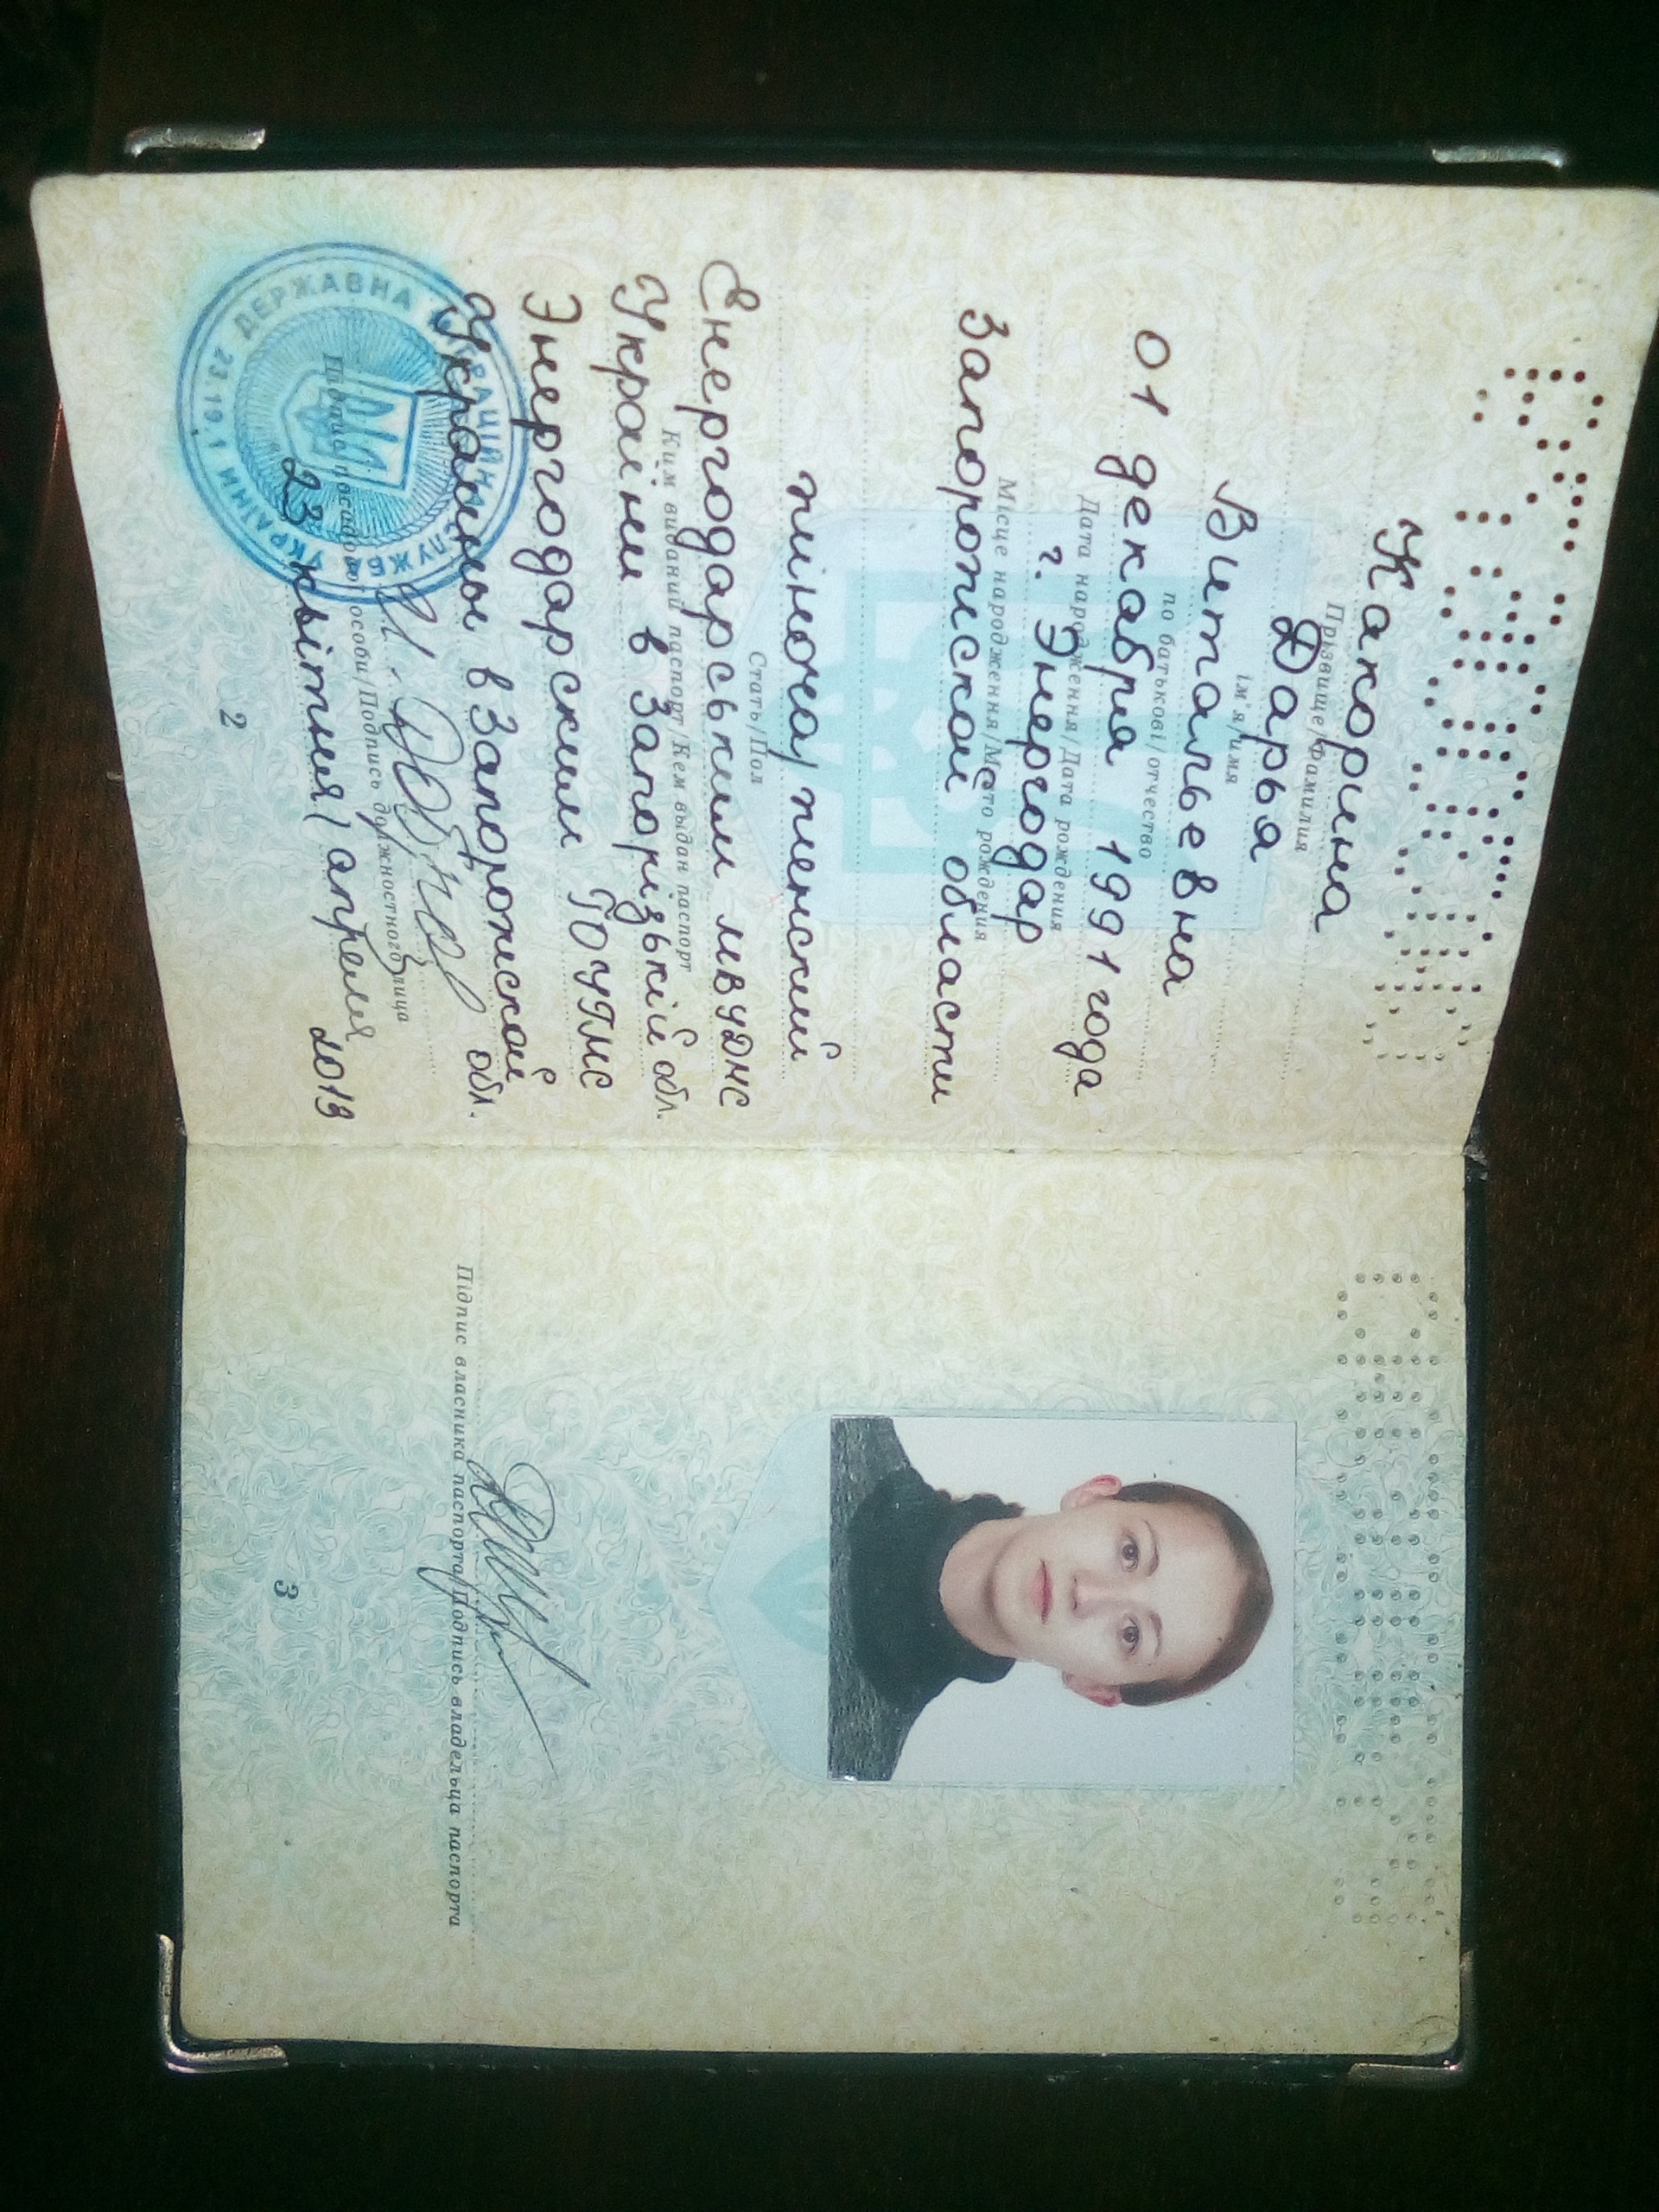 Какорина
Прізвище/Фамилия
Дарья
ім'я/имя
Витальевна
по батькові/отчество
01 декабря 1991 года
Дата народження/Дата рождения
г. Энергодар
Місце народження/Место рождения
Запорожской области
жіноча/женский
Стать/Пол
Енергодарським МВ УДМС
Ким виданий паспорт/Кем выдан паспорт
України в Запорізькій обл.
Энергодарским ГО УГМС
Украины в Запорожской обл.
Підпис посадової особи/Подпись должностного лица
23 квітня/апреля 2013
ДЕРЖАВНА МІГРАЦІЙНА СЛУЖБА УКРАЇНИ
2
Підпис власника паспорта/Подпись владельца паспорта
3